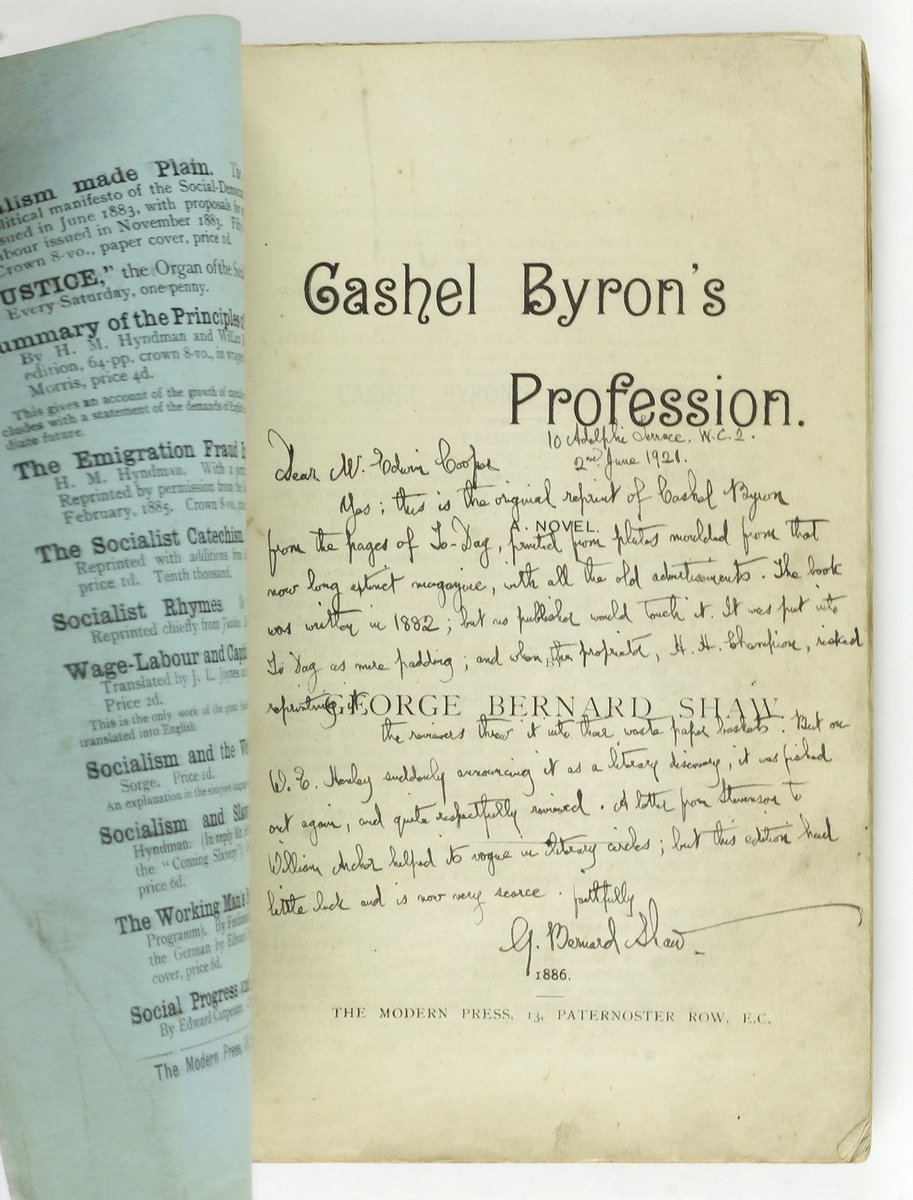 alism made Plain. The
litical manifesto of the Social-Democra
sued in June 1883, with proposals for
abour issued in November 1883.
Crown 8-vo., paper cover, price 1d.
USTICE," the Organ of the So
Every Saturday, one-penny.
ummary of the Principles of
By H. M. Hyndman and Willi
edition, 64-pp. crown 8-vo., in wrap
Morris, price 4d.
This gives an account of the growth of
cludes with a statement of the demands of
diate future.
The Emigration Fraud
H. M. Hyndman. With a
Reprinted by permission from the
February, 1885. Crown 8-vo.,
The Socialist Catechism
Reprinted with additions from
price 1d. Tenth thousand.
Socialist Rhymes
Reprinted chiefly from
Wage-Labour and Capi
Translated by J. L. Joynes
Price 2d.
This is the only work of the great
translated into English.
Socialism and the W
Sorge. Price 1d.
An explanation in the simplest
Socialism and Slav
Hyndman. (In reply
the "Coming Slavery")
price 6d.
The Working Man's
Programm). By Ferdinand
the German by Edward
cover, price 6d.
Social Progress an
By Edward Carpenter.
The Modern Press, 13
Cashel Byron's
Profession.
10 Adelphi Terrace. W.C.2.
2nd June 1921.
Dear Mr. Edwin Cooper
Yes; this is the original reprint of Cashel Byron
A NOVEL.
from the pages of To-Day, printed from plates moulded from that
now long extinct magazine, with all the old advertisements. The book
was written in 1882; but no publisher would touch it. It was put into
To Day as mere padding; and when the proprietor, H. H. Champion, risked
reprinting it
GEORGE BERNARD SHAW.
the reviewers threw it into their waste paper baskets. But on
W. E. Henley suddenly announcing it as a literary discovery, it was fished
out again, and quite respectfully reviewed. A letter from Stevenson to
William Archer helped its vogue in literary circles; but this edition had
little luck and is now very scarce. faithfully
G. Bernard Shaw
1886.
THE MODERN PRESS, 13, PATERNOSTER ROW, E.C.